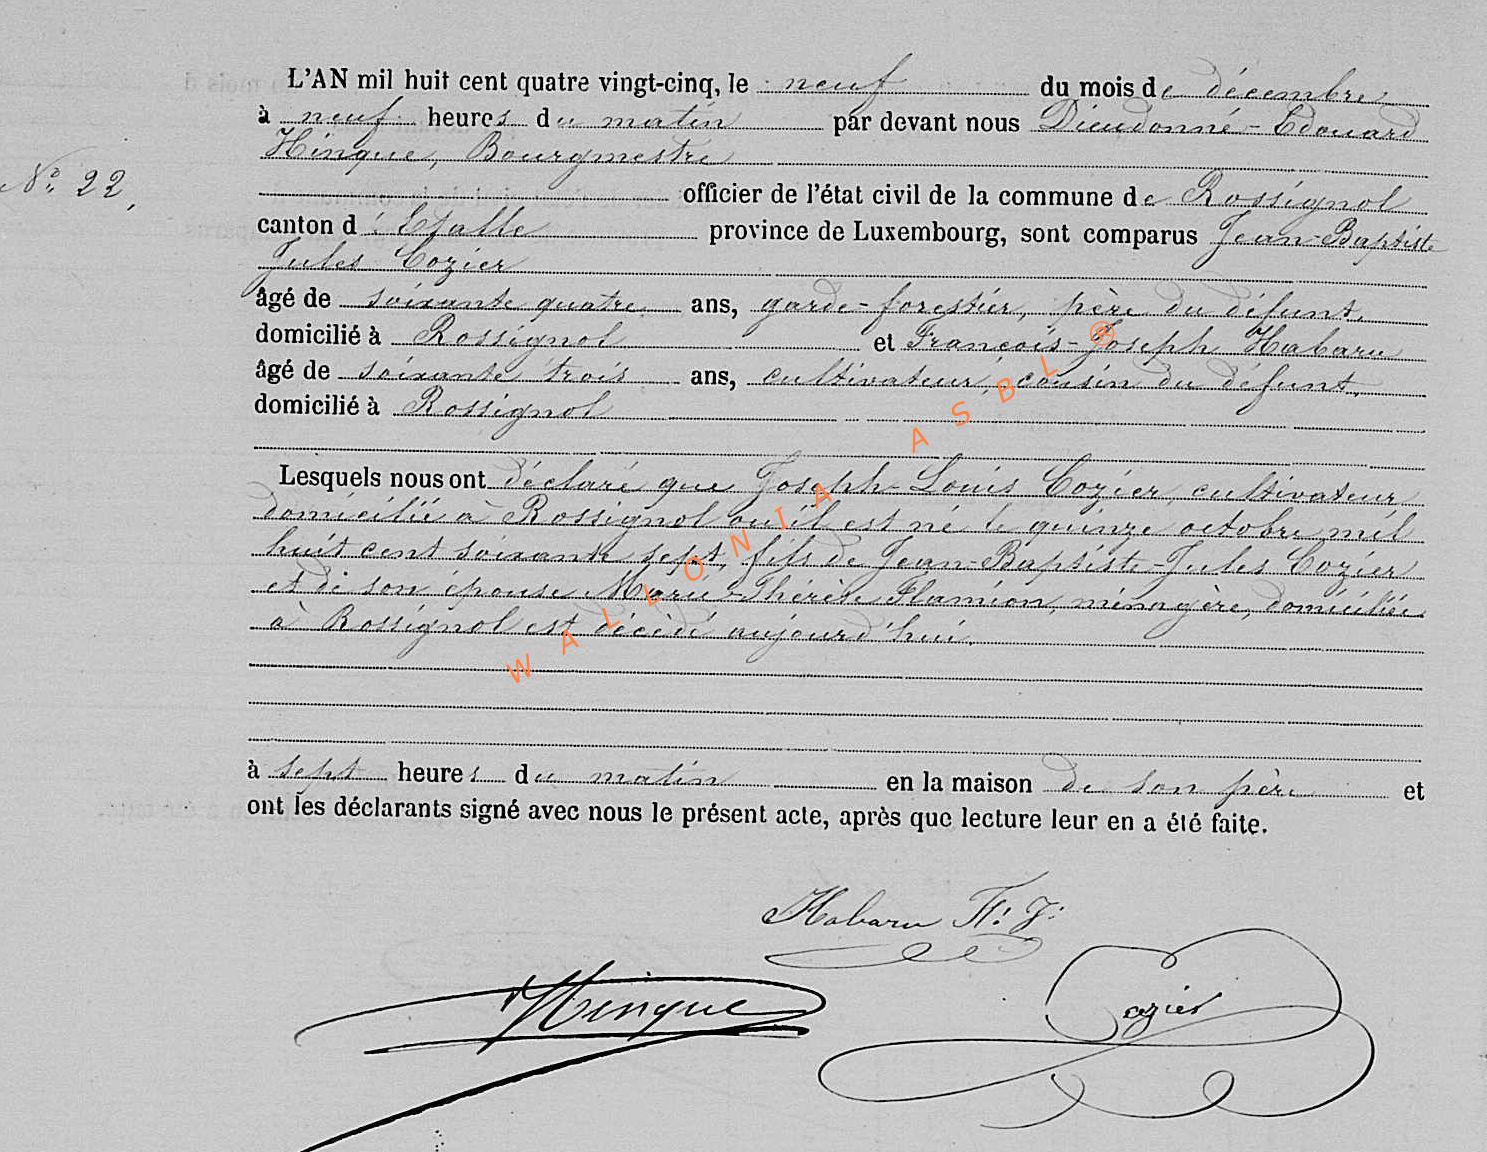 L'AN mil huit cent quatre vingt-cinq, le neuf du mois de décembre
à neuf heures du matin par devant nous Dieudonné-Edouard
Hinque, Bourgmestre
N° 22,
officier de l'état civil de la commune de Rossignol
canton d'Etalle province de Luxembourg, sont comparus Jean-Baptiste
Jules Cozier
âgé de soixante quatre ans, garde-forestier, père du défunt,
domicilié à Rossignol et François-Joseph Habaru
âgé de soixante trois ans, cultivateur, cousin du défunt,
domicilié à Rossignol
Lesquels nous ont déclaré que Joseph-Louis Cozier, cultivateur
domicilié à Rossignol où il est né le quinze octobre mil
huit cent soixante sept, fils de Jean-Baptiste-Jules Cozier
et de son épouse Marie-Thérèse Flamion, ménagère, domiciliés
à Rossignol est décédé aujourd'hui,
à sept heures du matin en la maison de son père et
ont les déclarants signé avec nous le présent acte, après que lecture leur en a été faite.
Habaru F. J.
Hinque
Cozier
WALLONIA ASBL ®